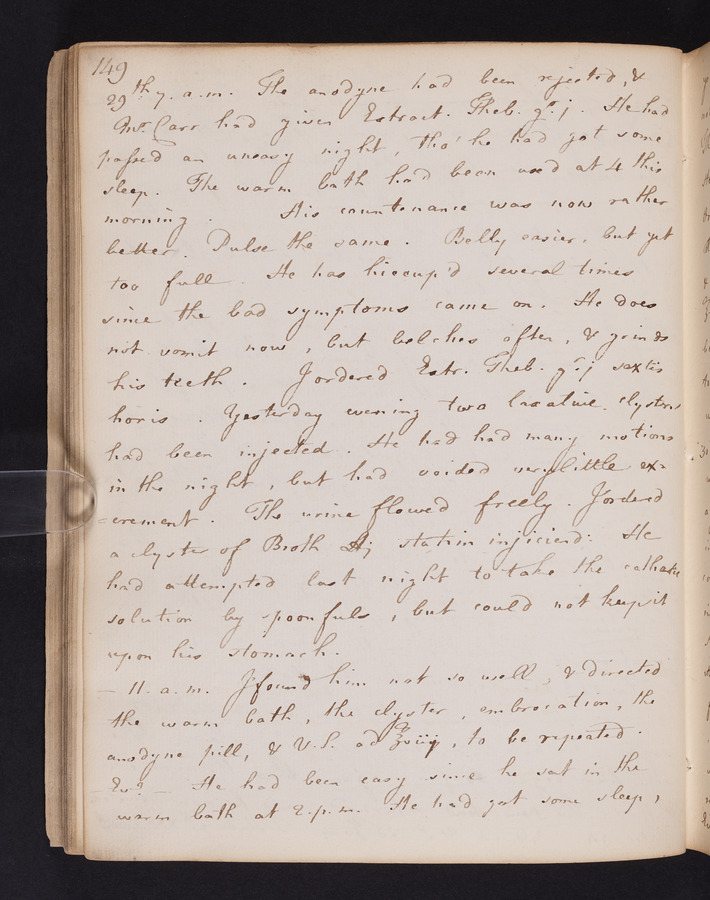 149
29th 7. a.m. The anodyne had been rejected, &
Mr. Carr had given Extract. Theb. gr. j. He had
passed an uneasy night, tho' he had got some
sleep. The warm bath had been used at 4 this
morning. His countenance was now rather
better. Pulse the same. Belly easier, but yet
too full. He has hiccup'd several times
since the bad symptoms came on. He does
not vomit now, but belches often, & grinds
his teeth. I ordered Extr. Theb. gr. j sextis
horis. Yesterday evening two laxative clysters
had been injected. He had had many motions
in the night, but had voided very little ex=
=crement. The urine flowed freely. I orderd
a clyster of Broth statim injiciend: He
had attempted last night to take the cathartic
solution by spoonfuls, but could not keep it
upon his stomach.
— 11. a.m. I found him not so well, & directed
the warm bath, the clyster, embrocation, the
anodyne pill, & V.S. ad ℥viij, to be repeated.
Ev? — He had been easy since he sat in the
warm bath at 2. p.m. He had got some sleep,